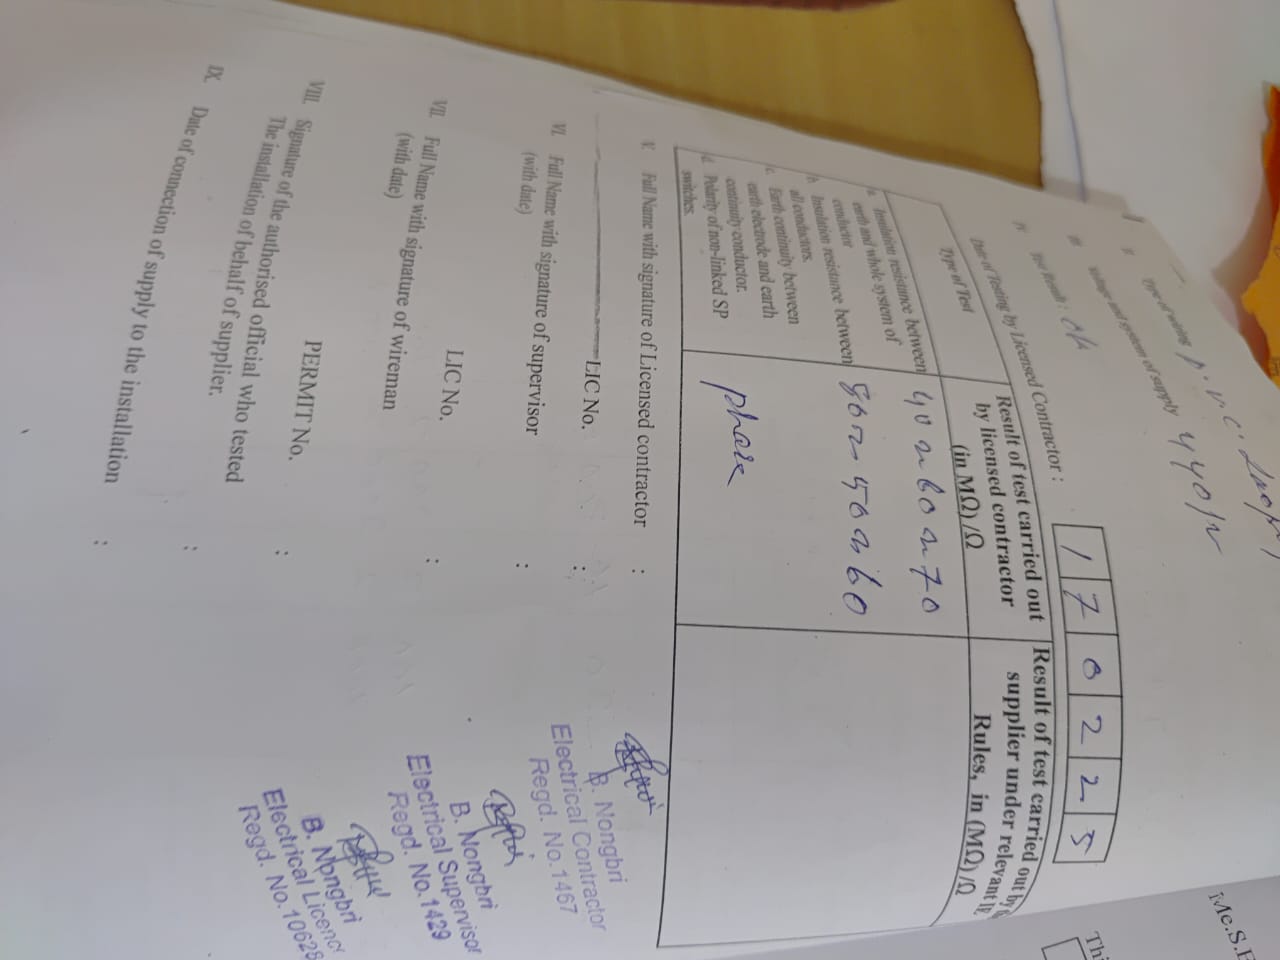 Me.S.E
Thi
Type of wiring P.V.C.
Voltage and system of supply 440/v
Test Result :
Date of Testing by Licensed Contractor : 1 7 0 2 2 5
Type of Test
Result of test carried out by licensed contractor (in MΩ)/Ω
Result of test carried out by
supplier under relevant
Rules, in (MΩ)/Ω
a. Insulation resistance between
earth and whole system of
conductor
b. Insulation resistance between
all conductors.
c. Earth continuity between
earth electrode and earth
continuity conductor.
d. Polarity of non-linked SP
switches.
phase
V. Full Name with signature of Licensed contractor :
LIC No. :
B. Nongbri
Electrical Contractor
Regd. No.1467
VI. Full Name with signature of supervisor :
(with date)
LIC No. :
B. Nongbri
Electrical Supervisor
Regd. No.1429
VII. Full Name with signature of wireman
(with date)
PERMIT No. :
B. Nongbri
Electrical
Regd. No.10628
VIII. Signature of the authorised official who tested
The installation of behalf of supplier. :
IX. Date of connection of supply to the installation :